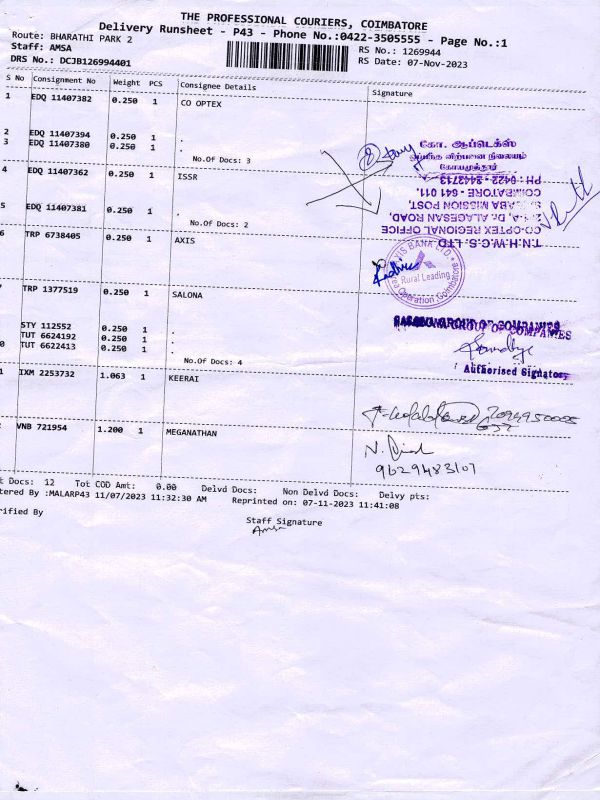 THE PROFESSIONAL COURIERS, COIMBATORE
Delivery Runsheet - P43 - Phone No.:0422-3505555 - Page No.:1
Route: BHARATHI PARK 2
RS No.: 1269944
Staff: AMSA
RS Date: 07-Nov-2023
DRS No.: DCJB126994401
S No Consignment No Weight PCS Consignee Details Signature
1 EDQ 11407382 0.250 1 CO OPTEX
2 EDQ 11407394 0.250 1 .
3 EDQ 11407380 0.250 1 .
No.Of Docs: 3
கோ. ஆப்டெக்ஸ்
விற்பனை நிலையம்
கோயமுத்தூர்
4 EDQ 11407362 0.250 1 ISSR
PH : 0422 - 2442713
COIMBATORE - 641 011.
BABA MISSION POST,
Dr. ALAGESAN ROAD,
CO-OPTEX REGIONAL OFFICE
T.N.H.W.C.S. LTD.
5 EDQ 11407381 0.250 1 .
No.Of Docs: 2
6 TRP 6738405 0.250 1 AXIS
AXIS BANK LTD.
Rural Leading
Operation Coimbatore
TRP 1377519 0.250 1 SALONA
STY 112552 0.250 1 .
TUT 6624192 0.250 1 .
0 TUT 6622413 0.250 1 .
No.Of Docs: 4
GROUP OF COMPANIES
Authorised Signatory
1 IXM 2253732 1.063 1 KEERAI
VNB 721954 1.200 1 MEGANATHAN
9629483107
t Docs: 12 Tot COD Amt: 0.00 Delvd Docs: Non Delvd Docs: Delvy pts:
tered By :MALARP43 11/07/2023 11:32:30 AM Reprinted on: 07-11-2023 11:41:08
rified By
Staff Signature
Amsa